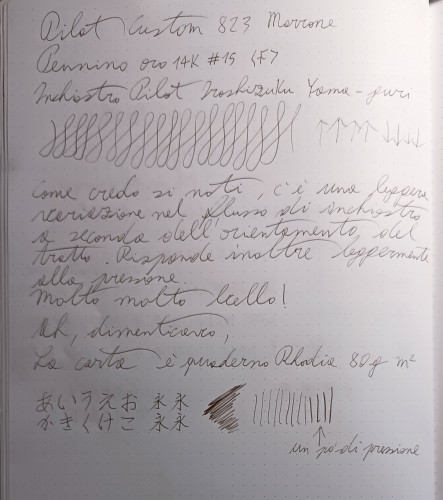 Pilot Custom 823 Marrone
Pennino oro 14K #15 <F>
Inchiostro Pilot Iroshizuku Yama-guri
↑↑↑↑ ↓↓↓↓
Come credo si noti, c'è una leggera
variazione nel flusso di inchiostro
a seconda dell'orientamento del
tratto. Risponde inoltre leggermente
alla pressione.
Molto molto bello!
Ah, dimenticavo,
La carta è quaderno Rhodia 80g m²
あいうえお 永永
かきくけこ 永永
↑
un po' di pressione